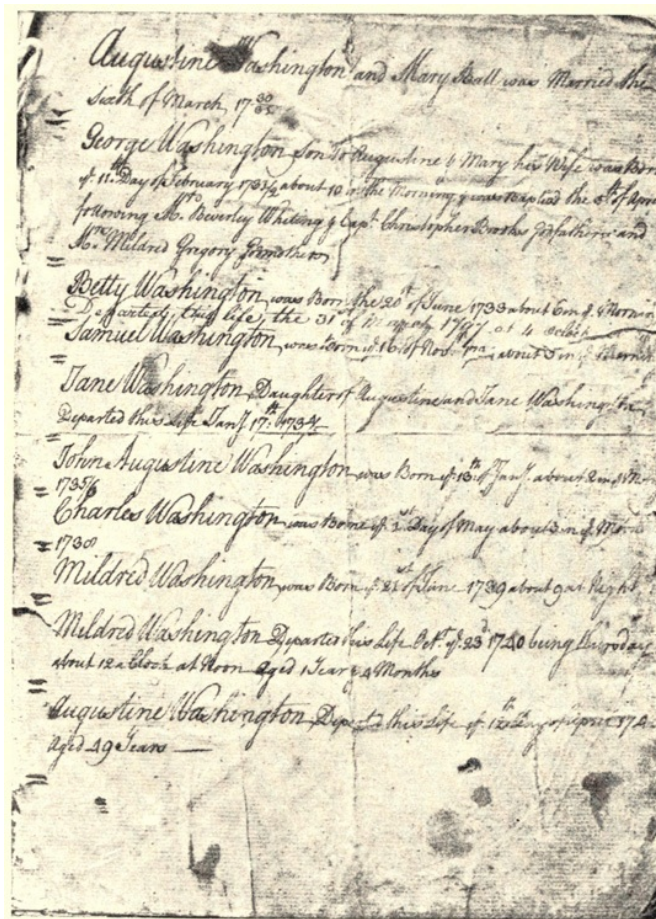 Augustine Washington and Mary Ball was Married the
Sixth of March 17 30/31
George Washington Son to Augustine & Mary his Wife was Born
yᵉ 11th Day of February 1731/2 about 10 in the Morning & was Baptised the 5th of April
following Mr. Beverley Whiting & Capt. Christopher Brooks Godfathers and
Mrs. Mildred Gregory Godmother
Betty Washington was Born the 20th of June 1733 about 6 in yᵉ Mornin
Departed this life, the 31st of March 1797 at 4 oclock
Samuel Washington was Born yᵉ 16 of Novr. about 3 in yᵉ Mornin
Jane Washington Daughter of Augustine and Jane Washington
Departed this Life Jany. 17th 1734/5
John Augustine Washington was Born yᵉ 13th of Jany. about 2 in yᵉ Mo
1735/6
Charles Washington was Borne yᵉ Day of May about 3 in yᵉ Morn
1738
Mildred Washington was Born yᵉ 21st of June 1739 about 9 at Night
Mildred Washington Departed this Life Octr. yᵉ 23d 1740 being Thursday
about 12 a Clock at Noon Aged 1 Year & 4 Months
Augustine Washington Departed this Life yᵉ 12th Day of April 174
Aged 49 Years